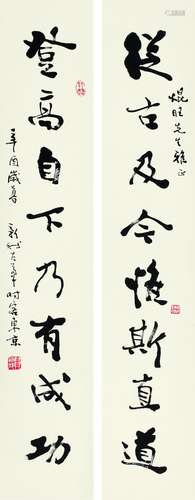 從古及今循斯直道
焜旺先生雅正
登高自下乃有成功
辛酉歲暮
時客東京